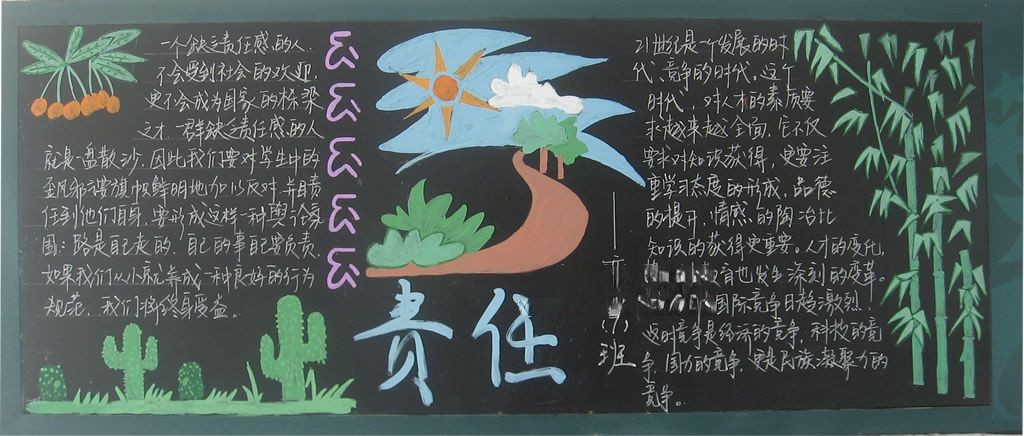 一个缺乏责任感的人，
不会受到社会的欢迎，
更不会成为国家的栋梁
之才，一群缺乏责任感的人
就是一盘散沙，因此我们要对学生中的
歪风邪气要旗帜鲜明地加以反对，并且责
任到他们自身，要形成这样一种舆论氛
围：路是自己走的，自己的事自己要负责
如果我们从小就养成一种良好的行为
规范，我们将终身受益。
责任
（7）班
21世纪是一个发展的时
代、竞争的时代，这个
时代，对人才的素质要
求越来越全面，它不仅
要求对知识获得，更要注
重学习态度的形成，品德
的提升，情感的陶冶比
知识的获得更重要。人才的变化，
也发生深刻的变革。
国际竞争日趋激烈，
这时竞争是经济的竞争，科技的竞
争，国力的竞争，更是民族凝聚力的
竞争。